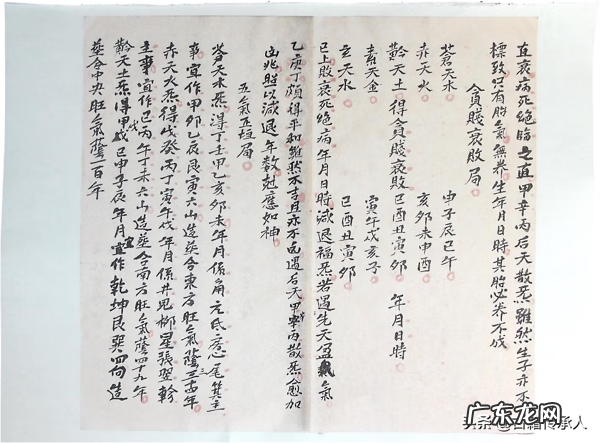 直衰病死絕臨之直甲辛丙后天散炁雖然生子亦不
標致只有胎氣無養生年月日時其胎必養不成
貪賤衰敗局
蒼天木　申子辰巳午
赤天火　亥卯未申酉
黅天土　得貪賤衰敗　巳酉丑寅卯　年月日時
素天金　寅午戌亥子
玄天水　巳酉丑寅卯
已上敗衰死絕病年月日時減退福炁若遇先天盈氣
乙庚丁頗得平和雖然不吉且亦不危遇后天甲辛丙散炁愈加
凶兆照以減退年數尅應如神
五氣五垣局
蒼天木炁得丁壬甲乙亥卯未年月係角亢氐房心尾箕主
事宜作甲卯乙辰艮寅六山造葬合東方旺氣蔭三十年
赤天火炁得戊癸丙丁寅午戌年月係井鬼柳星張翌軫
主事宜作巳丙午丁未六山造葬合南方旺氣蔭四十九年
黅天土炁得甲戊己申子辰年月宜作乾坤艮巽四向造
葬合中央旺氣蔭一百年
头条@古籍传承人
广东龙网